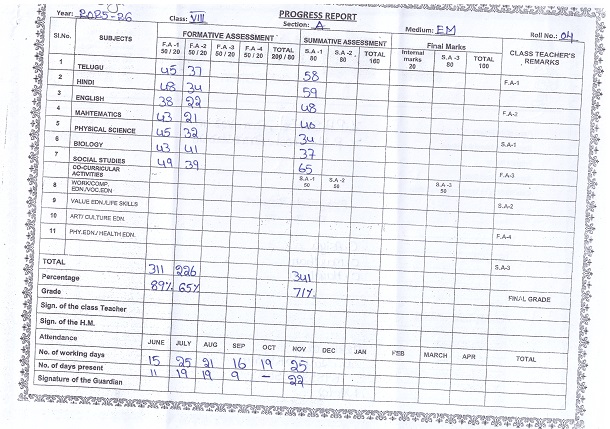 PROGRESS REPORT
Year: 2025-26 Class: VIII Section: A Medium: EM Roll No.: 04
Sl.No. SUBJECTS FORMATIVE ASSESSMENT SUMMATIVE ASSESSMENT Final Marks CLASS TEACHER'S REMARKS
F.A -1 50 / 20 F.A -2 50 / 20 F.A -3 50 / 20 F.A -4 50 / 20 TOTAL 200 / 80 S.A -1 80 S.A -2 80 TOTAL 160 Internal marks 20 S.A -3 80 TOTAL 100
1 TELUGU 45 37 58 F.A-1
2 HINDI 48 34 59
3 ENGLISH 38 22 48 F.A-2
4 MAHTEMATICS 43 21 40
5 PHYSICAL SCIENCE 45 32 34 S.A-1
6 BIOLOGY 43 41 37
7 SOCIAL STUDIES 49 39 65 F.A-3
CO-CURRICULAR ACTIVITIES S.A -1 50 S.A -2 50 S.A -3 50
8 WORK/COMP. EDN./VOC.EDN
9 VALUE EDN./LIFE SKILLS S.A-2
10 ART/ CULTURE EDN.
11 PHY.EDN./ HEALTH EDN. F.A-4
TOTAL 311 226 341 S.A-3
Percentage 89% 65% 71%
Grade FINAL GRADE
Sign. of the class Teacher
Sign. of the H.M.
Attendance JUNE JULY AUG SEP OCT NOV DEC JAN FEB MARCH APR TOTAL
No. of working days 15 25 21 16 19 25
No. of days present 11 19 19 9 - 22
Signature of the Guardian